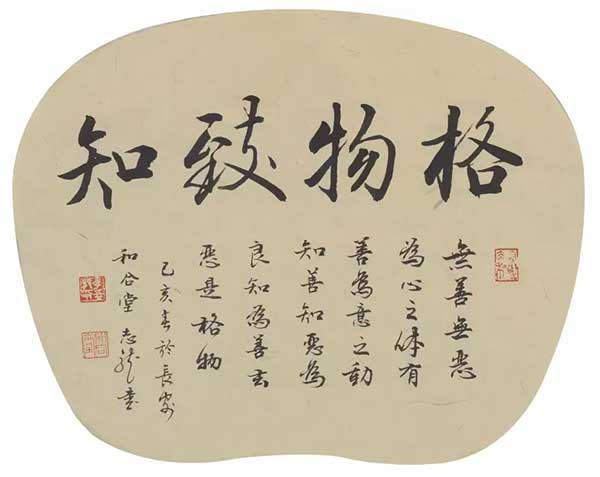 格物致知
無善無惡
為心之体有
善為意之動
知善知惡為
良知為善去
惡是格物
乙亥春於長安
和合堂 志龍書